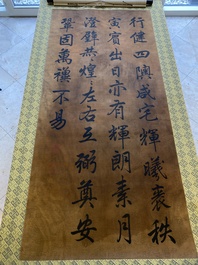 行健四隩咸宅輝曦表秩
寅賓出日亦有輝朗素月
澄鮮恭煌左右互弼奠安
鞏固萬禩不易